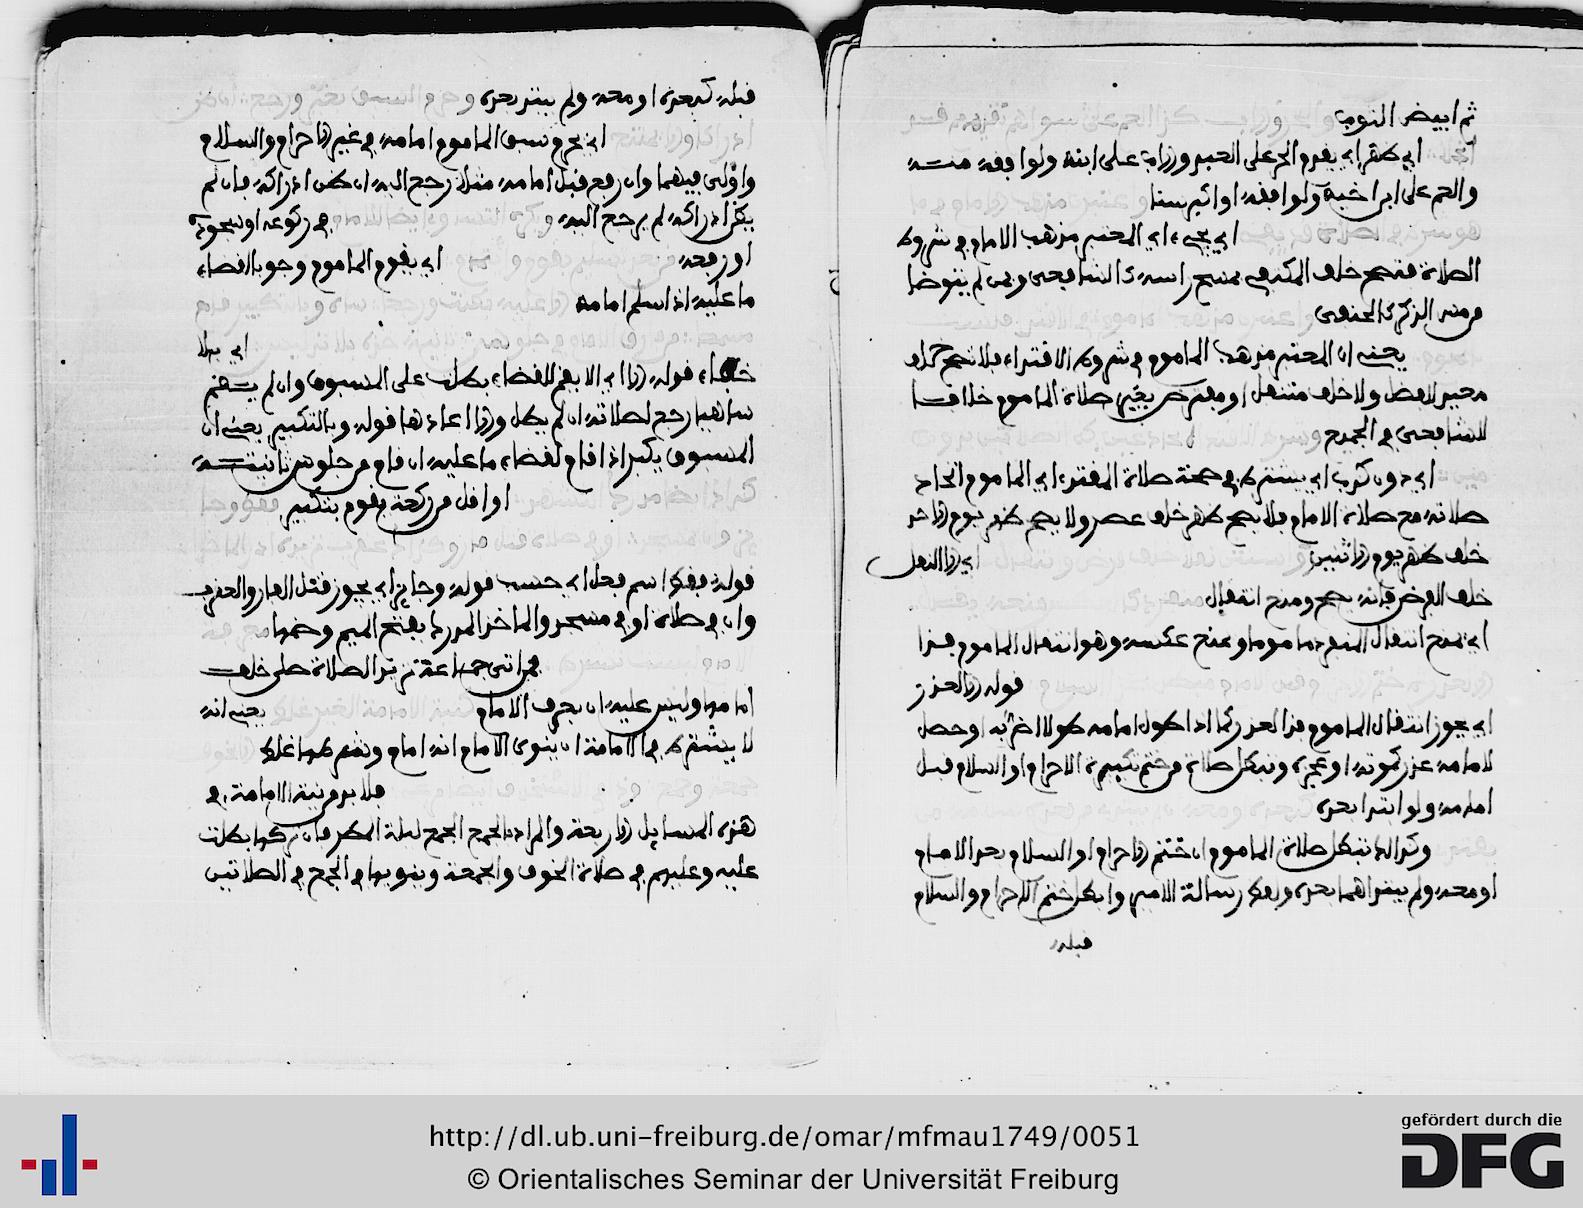 ثم ابيض الثوب
اي كفراي يقدم الحر على العبد والاب على ابنه ولو افقه منه
والعم على ابن اخيه ولو افقه او اكبر سنا
اي يعني اي المعتبر مذهب الامام في شروط
الصلاة فتصح خلف المكتفي بمسح راسه كالشافعي ومن لم يتوضا
من مس الذكر كالحنفي
يعني ان المعتبر مذهب الماموم في شروط الاقتداء فلا تصح خلف
معيد لفضل ولا خلف متنفل او مفترض بغير صلاة الماموم خلافا
للشافعي في الجميع
اي دون كره اي يشترط في صحة صلاة المقتدي اي الماموم اتحاد
صلاته مع صلاة الامام فلا يصح ظهر خلف عصر ولا يصح ظهر يوم الاحد
خلف ظهر يوم الاثنين اي الا النفل
خلف الفرض فانه يصح ومنع انتقال
اي يمنع انتقال المنفرد ماموما ويمنع عكسه وهو انتقال الماموم فذا
قوله الا لعذر
اي يجوز انتقال الماموم فذا لعذر كما اذا طول امامه طولا اضر به او حصل
لامامه عذر كموته او عجزه وتبطل صلاة من ختم تكبيرة الاحرام او السلام قبل
امامه ولو ابتدا بعده
وكذلك تبطل صلاة الماموم ان ختم الاحرام او السلام بعد الامام
او معه ولم يبتداهما بعده ولفظ رسالة الامير وابطل ختم الاحرام والسلام
قبله
قبله كبعده او معه ولم يبتد بعده
اي يحرم سبق الماموم امامه في غير الاحرام والسلام
واولى فيهما وان رفع قبل امامه مثلا رجع اليه ان ظن ادراكه فان لم
يظن ادراكه لم يرجع اليه في ركوعه او سجوده
او رفعه اي يقوم الماموم وجوبا لقضاء
ما عليه اذا سلم امامه
اي بلا
قوله الا اي الا يقم للقضاء بطلت على المسبوق وان لم يستقم
ساهيا رجع لصلاته ان لم يطل والا اعادها قوله وبالتكبير يعني ان
المسبوق يكبر اذا قام لقضاء ما عليه ان قام من جلوس ثانيته
او اقل من ركعة يقوم بتكبير
قوله فقط اسم فعل اي حسب قوله وجايز اي يجوز قتل الفار والعقرب
وان في صلاة او في مسجد والماخر المراد بفتح الميم وضمها
من اتى جماعة تريد الصلاة صلى خلف
امامها وليس عليه ان يعرف الامام يعني انه
لا يشترط في الامامة ان ينوي الامام انه امام
فلا بد من نية الامامة في
هذه المسايل الاربعة والمراد بالجمع الجمع ليلة المطر فان تركها بطلت
عليه وعليهم في صلاة الخوف والجمعة وينويها في الجمع في الصلاتين
http://dl.ub.uni-freiburg.de/omar/mfmau1749/0051
© Orientalisches Seminar der Universität Freiburg
gefördert durch die
DFG